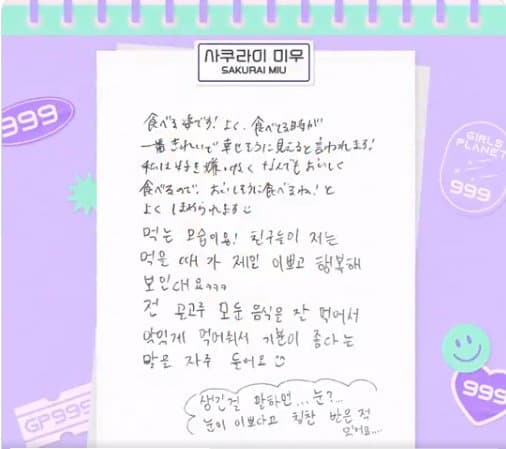 사쿠라이 미우
SAKURAI MIU
999
GIRLS
PLANET
999
食べる姿です! よく、食べてる時が
一番きれいで幸せそうに見えると言われます!
私は好き嫌いなくなんでもおいしく
食べるので、おいしそうに食べるね!と
よくほめられます
먹는 모습이용! 친구들이 저는
먹을 때가 제일 이쁘고 행복해
보인대요
전 모든 음식을 잘 먹어서
맛있게 먹어줘서 기분이 좋다는
말을 자주 들어요
생긴걸 말하면... 눈?...
눈이 이쁘다고 칭찬 받은 적
999
GP999